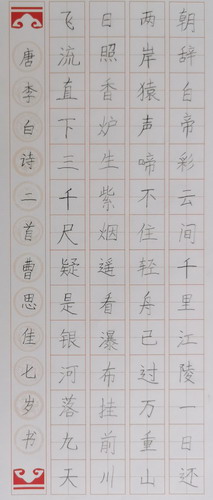 朝辞白帝彩云间千里江陵一日还
两岸猿声啼不住轻舟已过万重山
日照香炉生紫烟遥看瀑布挂前川
飞流直下三千尺疑是银河落九天
唐李白诗二首曹思佳七岁书